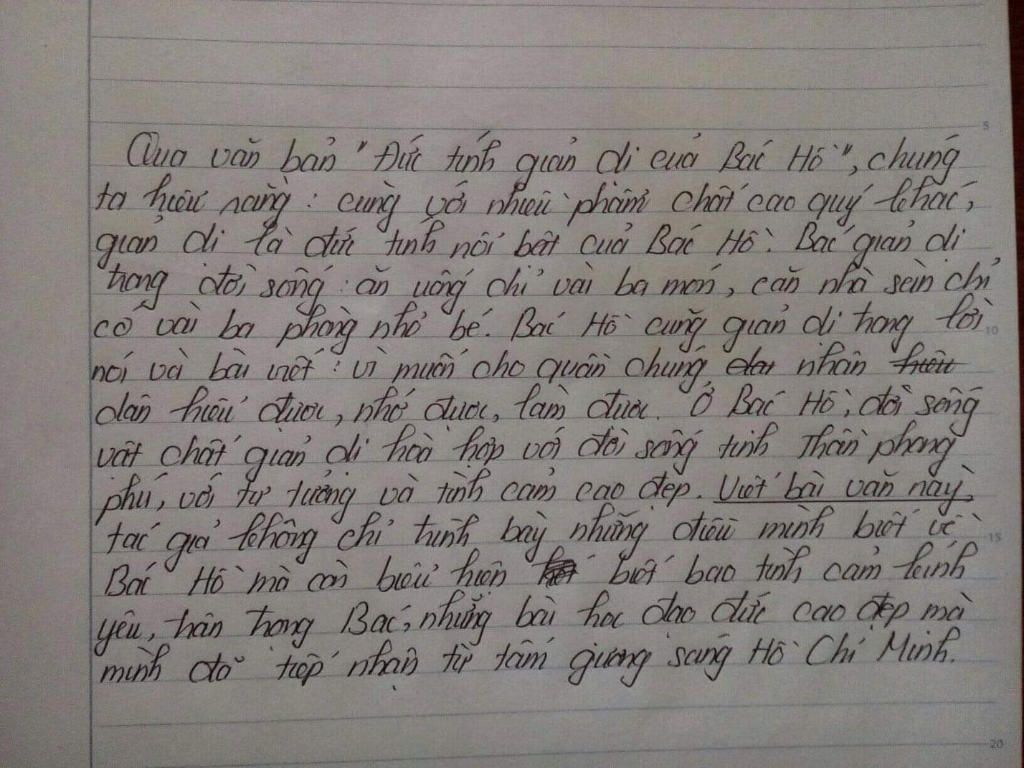 5
Qua văn bản "Đức tính giản dị của Bác Hồ", chúng
ta hiểu rằng: cùng với nhiều phẩm chất cao quý khác,
giản dị là đức tính nổi bật của Bác Hồ. Bác giản dị
trong đời sống: ăn uống chỉ vài ba món, căn nhà sàn chỉ
có vài ba phòng nhỏ bé. Bác Hồ cũng giản dị trong lời
10
nói và bài viết: vì muốn cho quần chúng nhân
dân hiểu được, nhớ được, làm được. Ở Bác Hồ, đời sống
vật chất giản dị hoà hợp với đời sống tinh thần phong
phú, với tư tưởng và tình cảm cao đẹp. Viết bài văn này,
tác giả không chỉ trình bày những điều mình biết về
15
Bác Hồ mà còn biểu hiện biết bao tình cảm kính
yêu, trân trọng Bác, những bài học đạo đức cao đẹp mà
mình đã tiếp nhận từ tấm gương sáng Hồ Chí Minh.
20